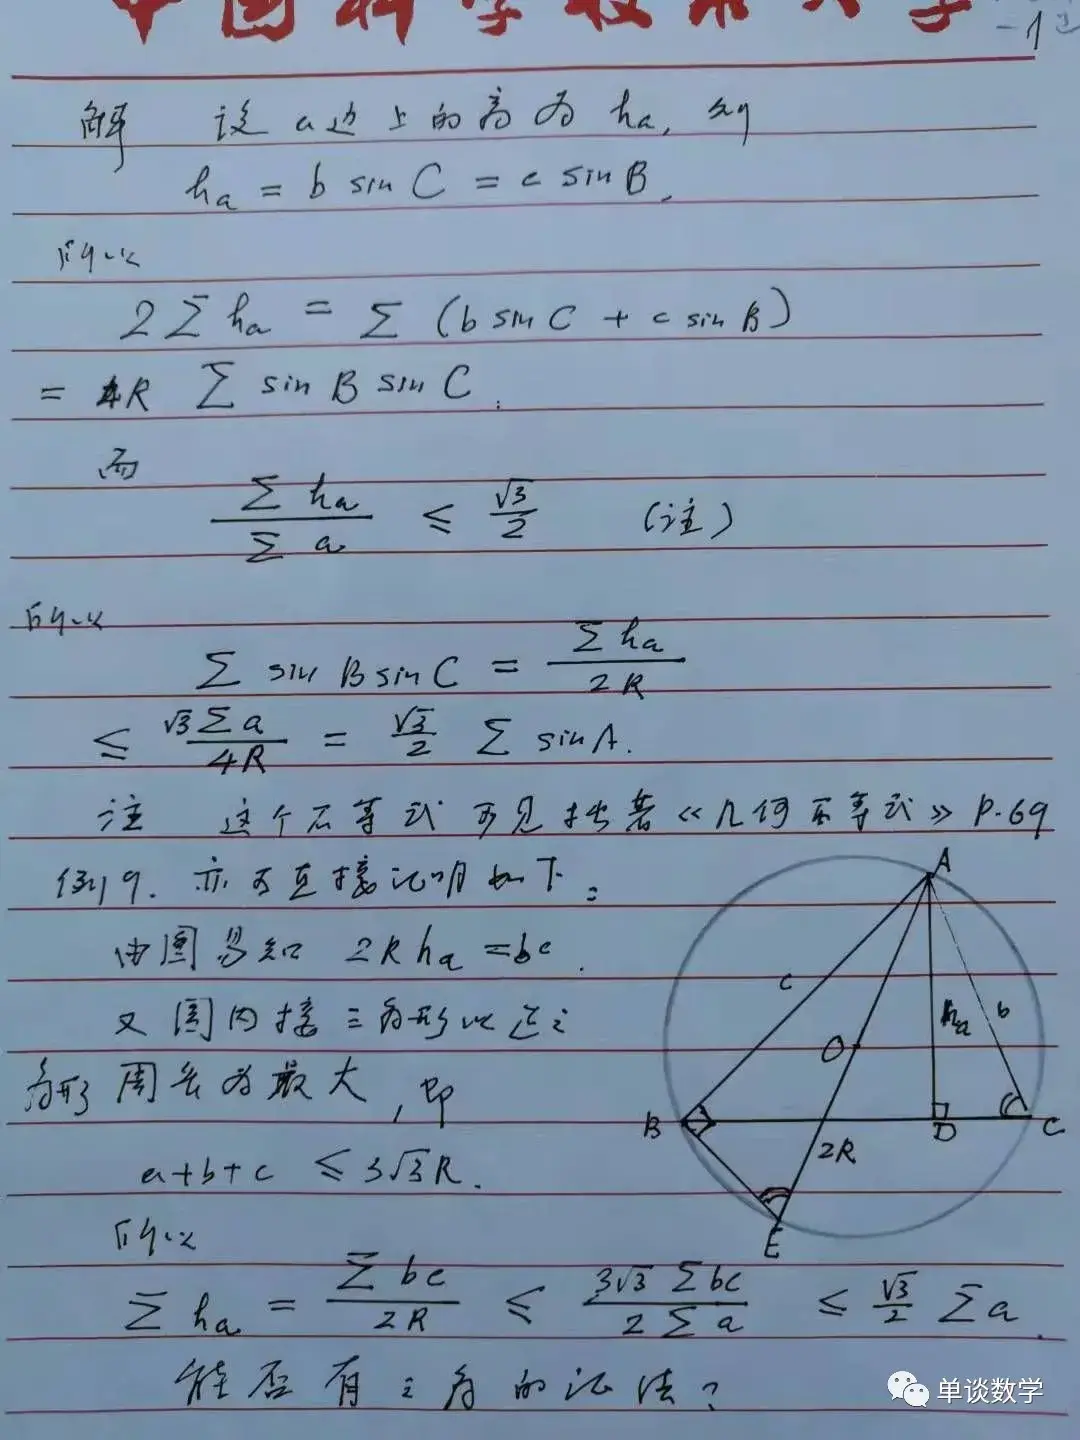 中国科学技术大学
-1
解 设a边上的高为 hₐ, 则
hₐ = b sin C = c sin B,
所以
2∑hₐ = ∑ (b sin C + c sin B)
= 4R ∑ sin B sin C .
而
∑hₐ / ∑a ≤ √3/2 (注)
所以
∑ sin B sin C = ∑hₐ / 2R
≤ √3∑a / 4R = √3/2 ∑ sin A.
注 这个不等式可见拙著《几何不等式》P.69
例9. 亦可直接证明如下:
由图易知 2R hₐ = bc .
又圆内接三角形以正三
角形周长为最大, 即
a+b+c ≤ 3√3 R .
所以
∑hₐ = ∑bc / 2R ≤ 3√3 ∑bc / 2∑a ≤ √3/2 ∑a .
能否有三角的证法?
A
c
hₐ
b
O
B
D
C
2R
E
单谈数学